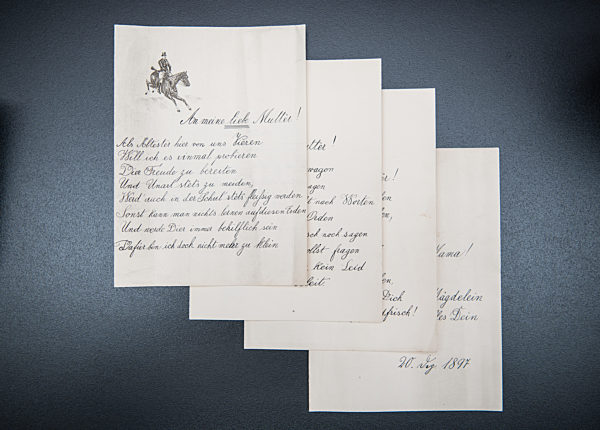 An meine liebe Mutter!
Als Ältester hier von uns Vieren
Will ich es einmal probieren
Dir Freude zu bereiten
Und Unart stets zu meiden,
Werd' auch in der Schul' stets fleißig werden
Sonst kann man nichts lernen auf diesen Erden
Und werde Dir immer behilflich sein
Dafür bin ich doch nicht mehr zu klein
tter!
wagon
ngen
t nach Worten
Orden
sch noch sagen
ollst fragen
kein Leid
leit.
r!
en,
en,
Dich
lfrisch!
ama!
ägdelein
les Dein
20. Dez. 1897